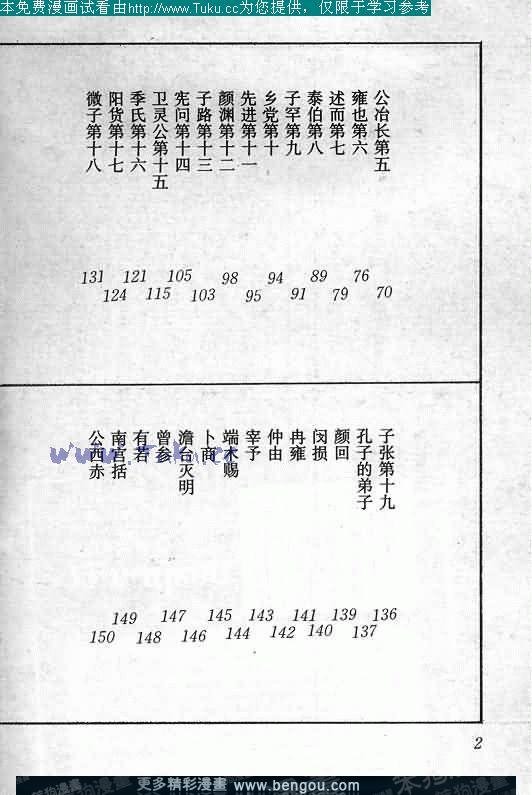 本免费漫画试看由http://www.Tuku.cc为您提供，仅限于学习参考
公冶长第五 70
雍也第六 76
述而第七 79
泰伯第八 89
子罕第九 91
乡党第十 94
先进第十一 95
颜渊第十二 98
子路第十三 103
宪问第十四 105
卫灵公第十五 115
季氏第十六 121
阳货第十七 124
微子第十八 131
子张第十九 136
孔子的弟子 137
颜回 139
闵损 140
冉雍 141
仲由 142
宰予 143
端木赐 144
卜商 145
澹台灭明 146
曾参 147
有若 148
南宫括 149
公西赤 150
2
更多精彩漫畫 www.bengou.com